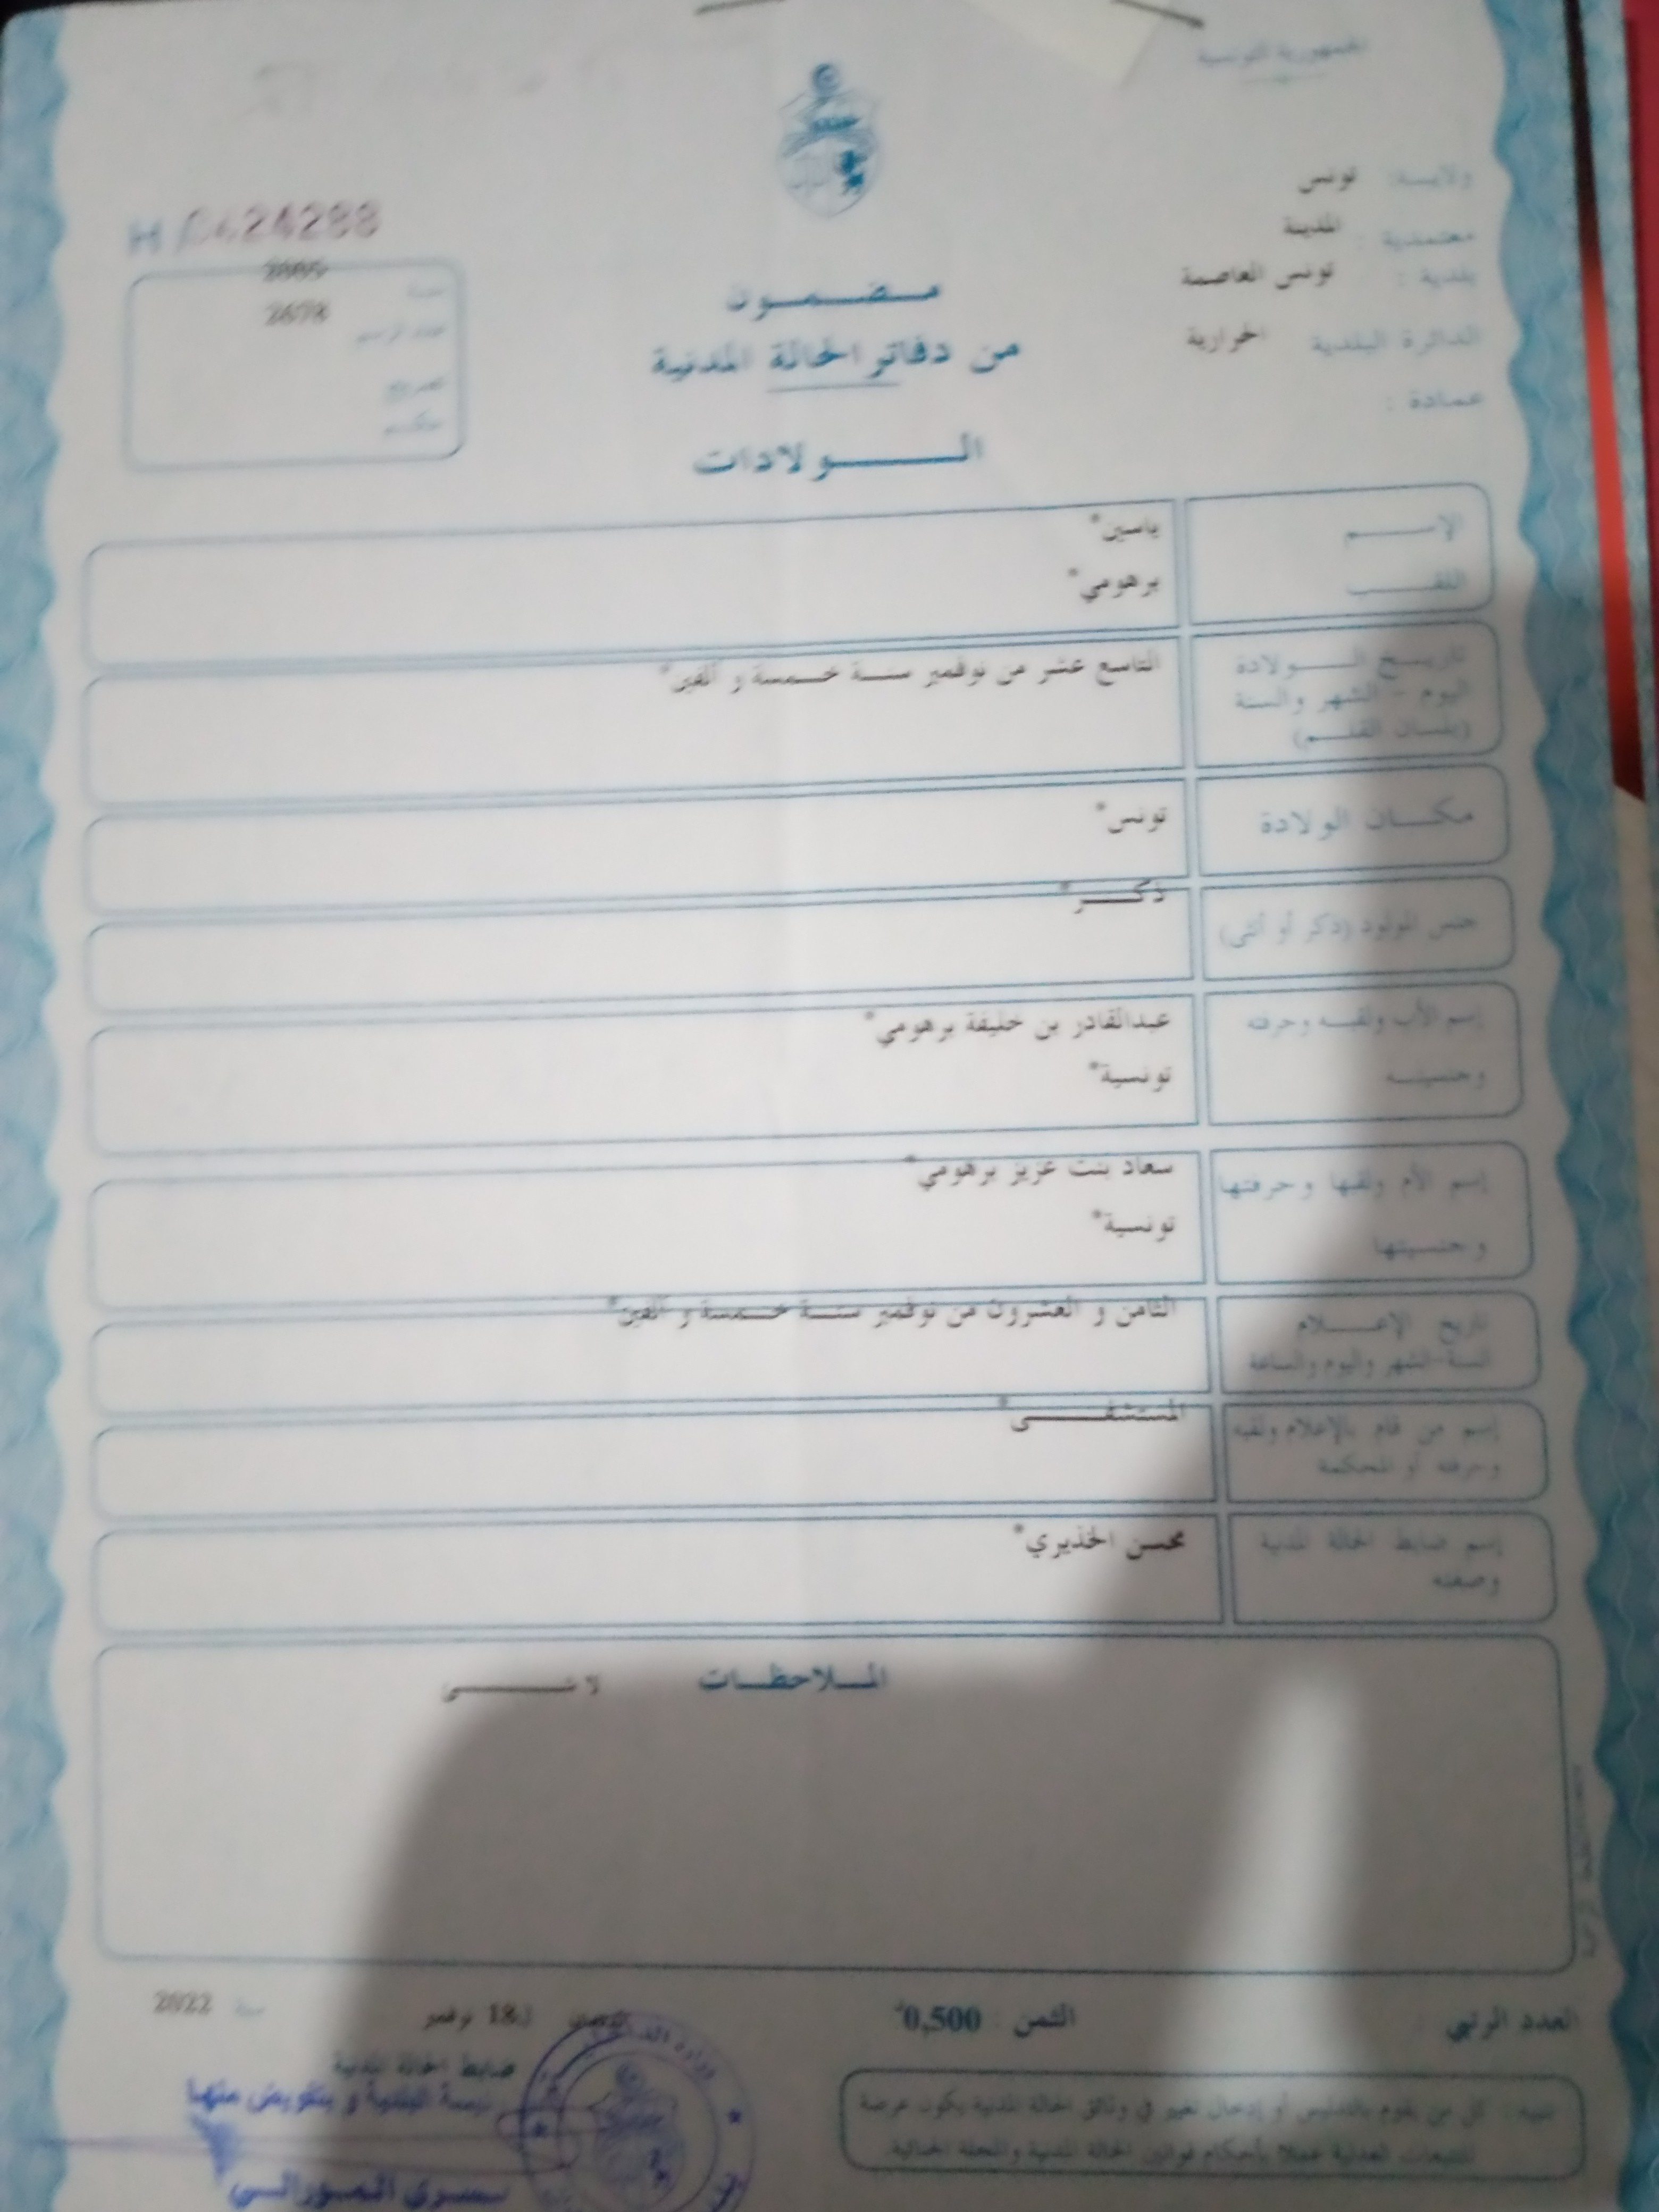 الجمهورية التونسية
ولايـة: تونس
معتمدية : المدينة
بلدية : تونس العاصمة
الدائرة البلدية الحرارية
عمـادة :
424288
سنة 2005
عدد الرسم 2678
مـضـمـون
من دفاتر الحالة المدنية
الـولادات
الإسـم ياسين*
اللقـب برهومي*
تاريـخ الـولادة التاسع عشر من نوفمبر سنـة خـمسة و ألفين*
اليوم - الشهر والسنة
(بلسان القلـم)
مكـان الولادة تونس*
جنس المولود (ذكر أو أنثى) ذكـر*
إسم الأب ولقبـه وحرفته عبدالقادر بن خليفة برهومي*
وجنسيتـه تونسية*
إسم الأم ولقبها وحرفتها سعاد بنت عزيز برهومي*
وجنسيتها تونسية*
تاريخ الإعـلام الثامن و العشرون من نوفمبر سنـة خـمسة و ألفين*
السنة-الشهر واليوم والساعة
إسم من قام بالإعلام ولقبه المستشفـى*
وحرفته أو المحكمة
إسم ضابط الحالة المدنية محسن الخذيري*
وصفته
المـلاحظـات لا شـي
العدد الرتبي
الثمن : 0,500د
18 نوفمبر سنة 2022
ضابط الحالة المدنية
تنبيه : كل من يقوم بالتدليس أو إدخال تغيير في وثائق الحالة المدنية يكون عرضة
للتتبعات العدلية عملا بأحكام قوانين الحالة المدنية والمجلة الجنائية.